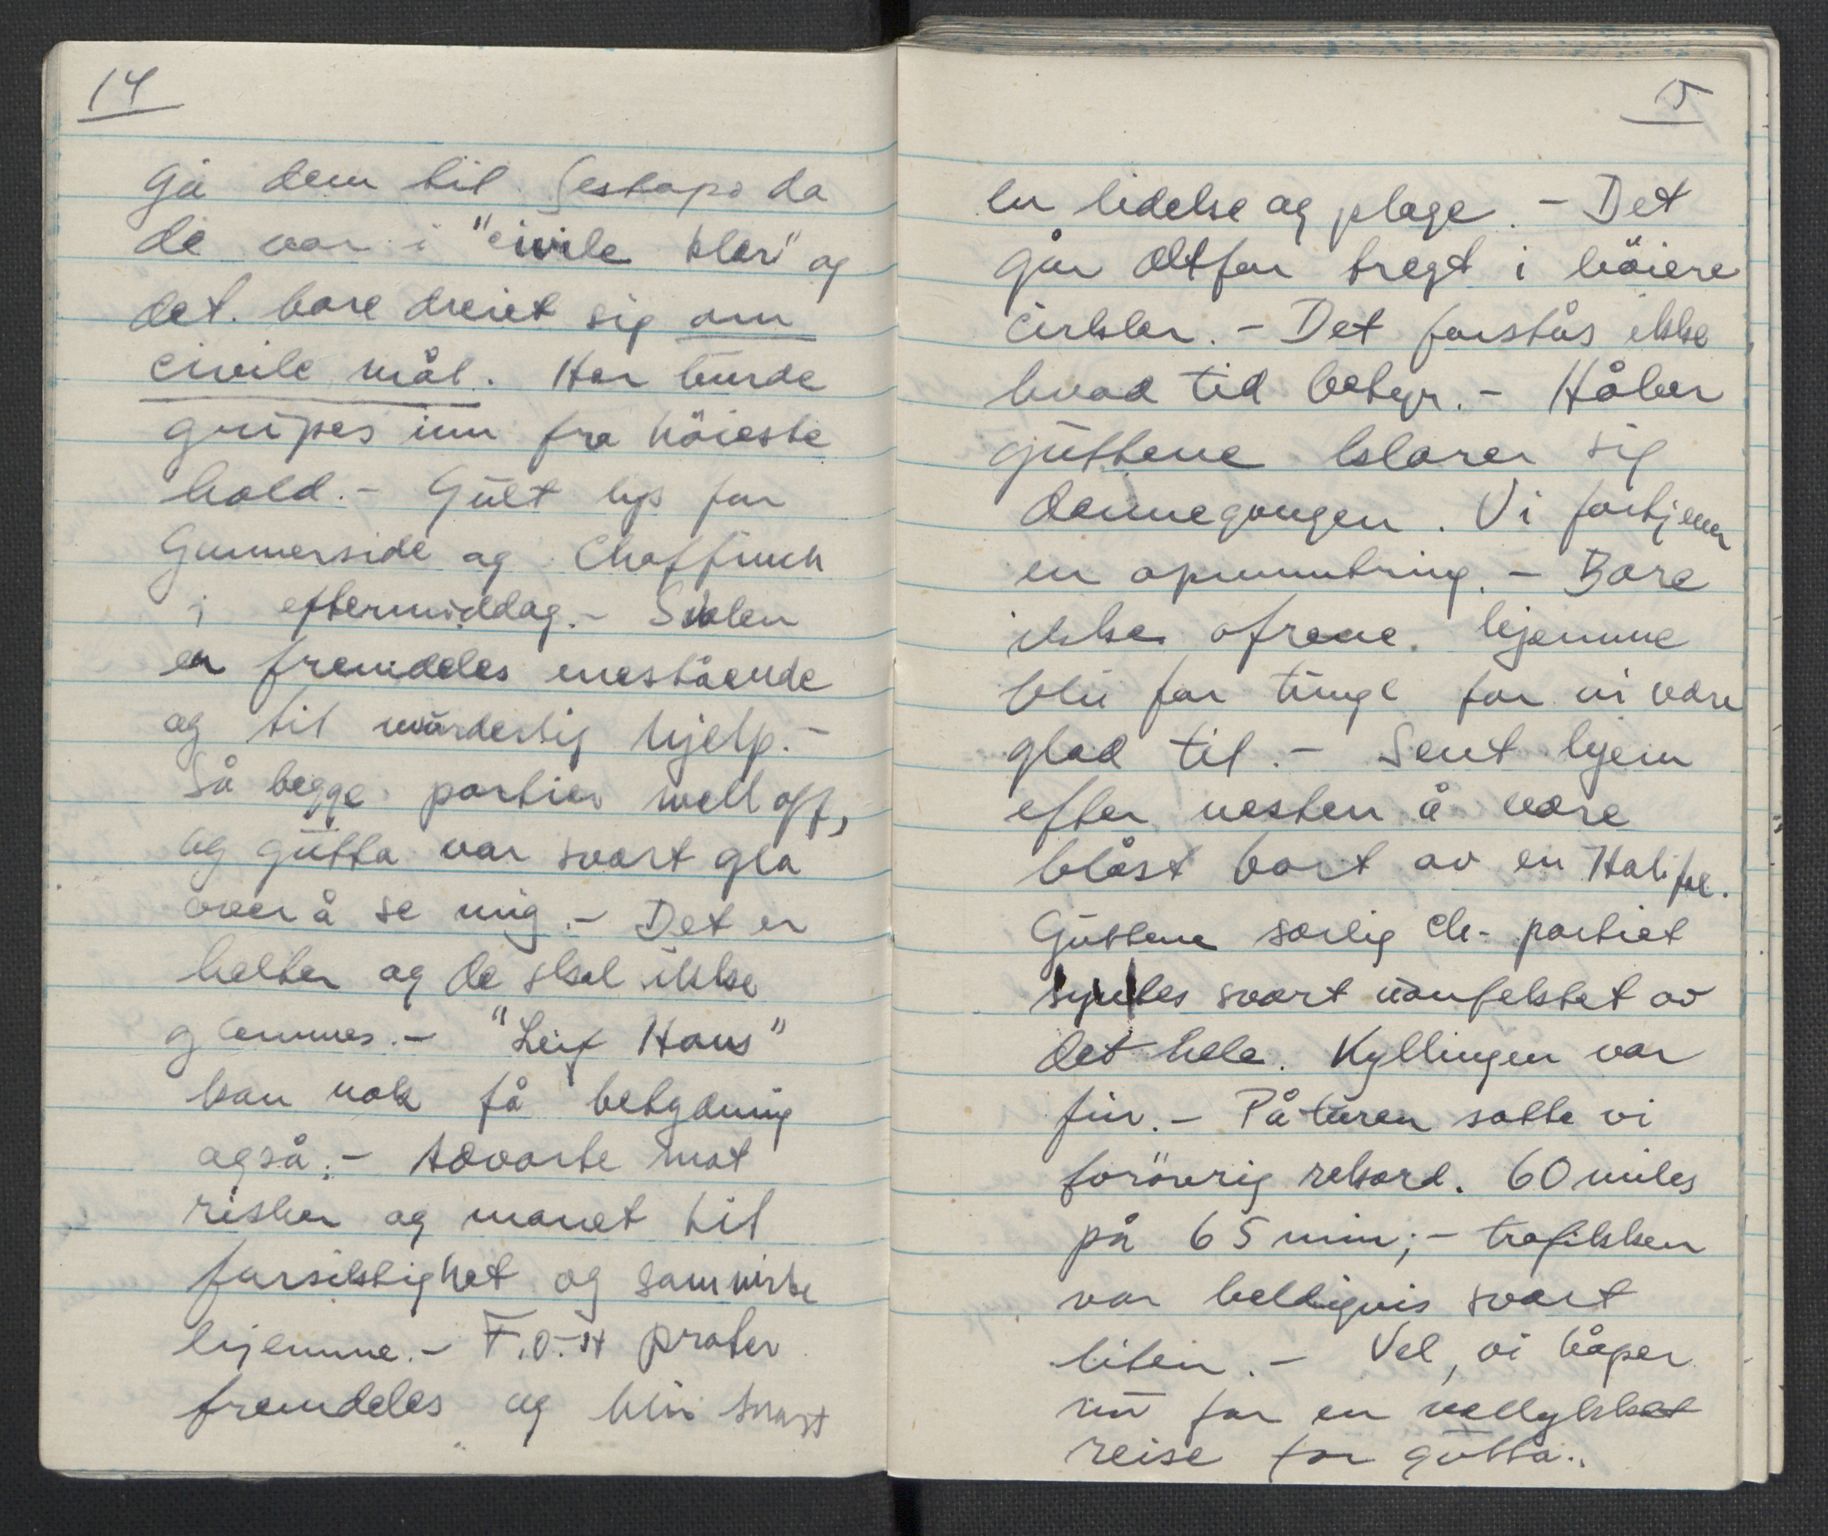 14
gå dem til Gestapo da
de var i "civile klær" og
det bare dreiet sig om
civile mål. Her burde
gripes inn fra höieste
hold. - Gult lys for
Gunnerside og Chaffinch
i eftermiddag. - Skolen
er fremdeles enestående
og til uvurderlig hjelp. -
Så begge partier well off,
og gutta var svært gla
over å se mig. - Det er
helter og de skal ikke
glemmes. - "Leif Hans"
kan nok få betydning
også. - Advarte mot
risker og manet til
forsiktighet og samvirke
hjemme. - F.O.-H prater
fremdeles og blir snart
5
en lidelse og plage. - Det
går altfor tregt i höiere
cirkler. - Det forstås ikke
hvad tid betyr. - Håber
guttene klarer sig
dennegangen. Vi fortjener
en opmuntring. - Bare
ikke ofrene hjemme
blir for tunge for vi være
glad til. - Sent hjem
efter nesten å være
blåst bort av en Halifax.
Guttene særlig Ch- partiet
syntes svært uanfektet av
det hele. Kyllingen var
fin. - På turen satte vi
forövrig rekord. 60 miles
på 65 min; - trafikken
var heldigvis svært
liten. - Vel, vi håper
nu for en vellykket
reise for gutta..